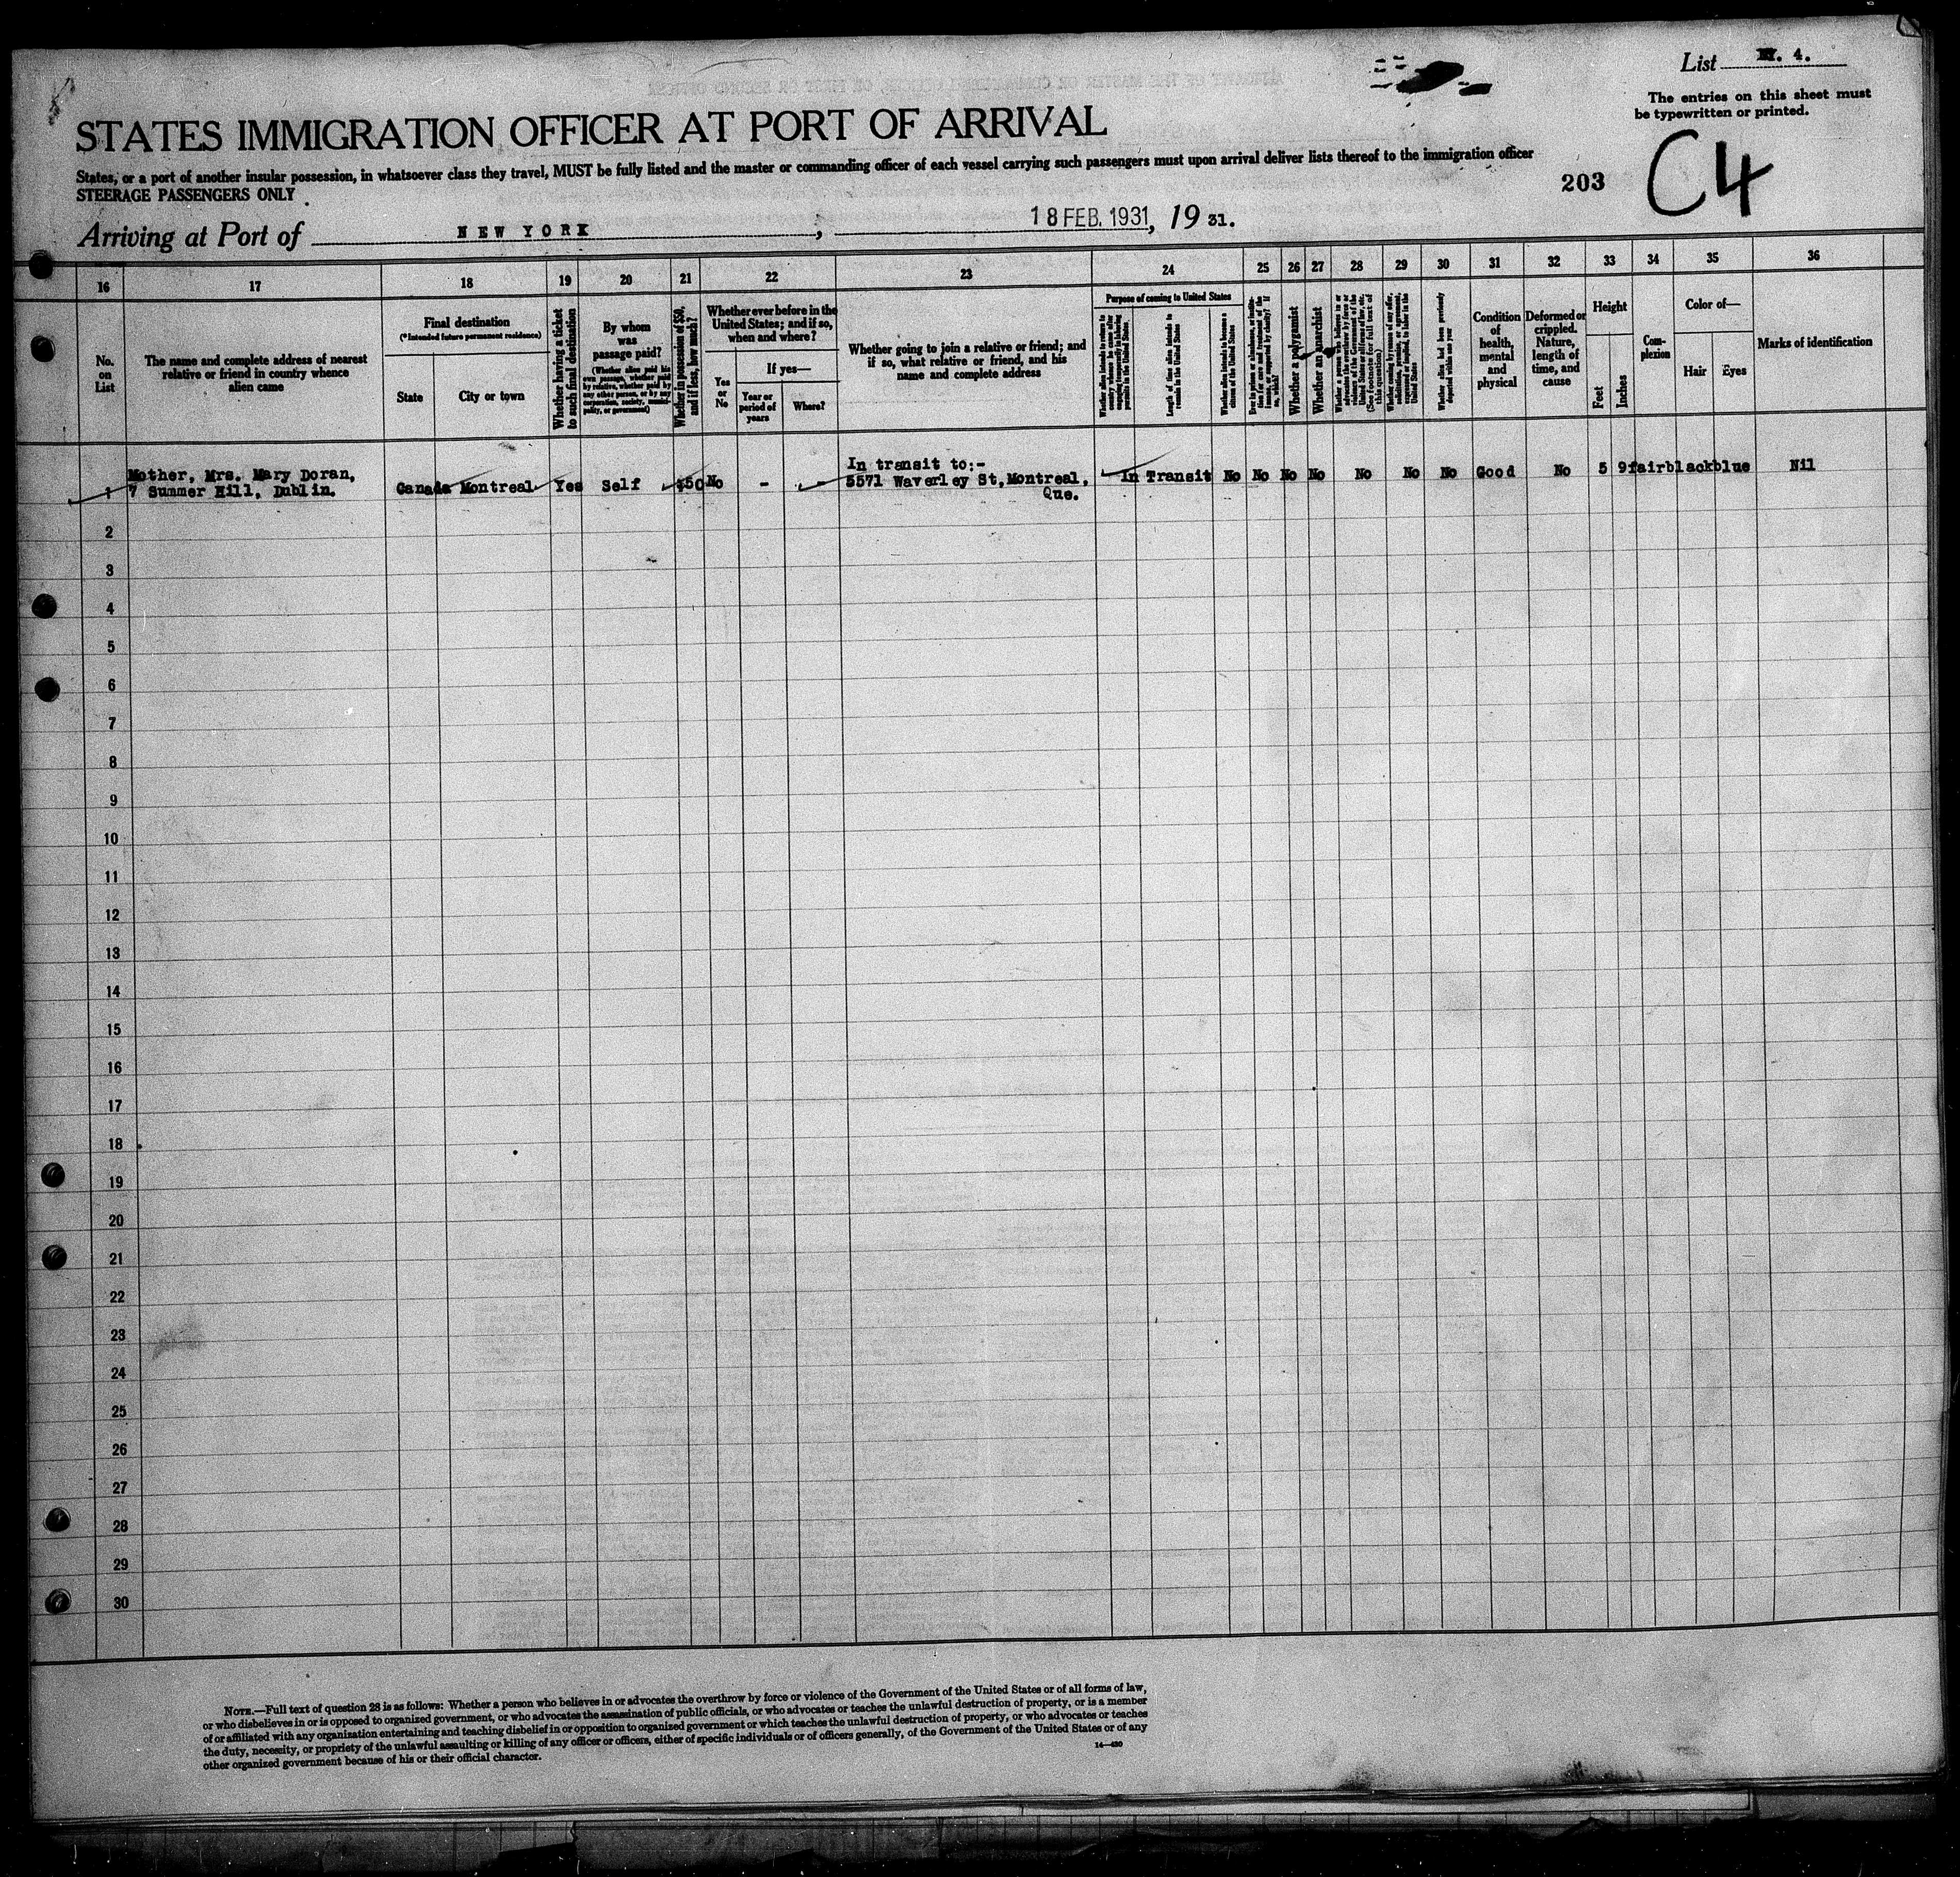 List IV. 4.
The entries on this sheet must
be typewritten or printed.
C4
203
STATES IMMIGRATION OFFICER AT PORT OF ARRIVAL
States, or a port of another insular possession, in whatsoever class they travel, MUST be fully listed and the master or commanding officer of each vessel carrying such passengers must upon arrival deliver lists thereof to the immigration officer
STEERAGE PASSENGERS ONLY
Arriving at Port of NEW YORK, 18 FEB. 1931, 19 31.
16 17 18 19 20 21 22 23 24 25 26 27 28 29 30 31 32 33 34 35 36
No.
on
List
The name and complete address of nearest
relative or friend in country whence
alien came
Final destination
(*Intended future permanent residence)
State
City or town
Whether having a ticket
to such final destination
By whom
was
passage paid?
(Whether alien paid his
own passage, whether paid
by relative, whether paid by
any other person, or by any
corporation, society, munici-
pality, or government)
Whether in possession of $50,
and if less, how much?
Whether ever before in the
United States; and if so,
when and where?
Yes
or
No
If yes—
Year or
period of
years
Where?
Whether going to join a relative or friend; and
if so, what relative or friend, and his
name and complete address
Purpose of coming to United States
Whether alien intends to return to
country whence he came after
engaging temporarily in laboring
pursuits in the United States
Length of time alien intends to
remain in the United States
Whether alien intends to become a
citizen of the United States
Whether a polygamist
Whether an anarchist
(See footnote for full text of
this question)
Whether alien had been previously
deported within one year
Condition
of
health,
mental
and
physical
Deformed or
crippled.
Nature,
length of
time, and
cause
Height
Feet
Inches
Com-
plexion
Color of—
Hair
Eyes
Marks of identification
Mother, Mrs. Mary Doran,
1 7 Summer Hill, Dublin. Canada Montreal Yes Self $50 No - -
In transit to:-
5571 Waverley St, Montreal,
Que.
In Transit No No No No No No No Good No 5 9 fair black blue Nil
2
3
4
5
6
7
8
9
10
11
12
13
14
15
16
17
18
19
20
21
22
23
24
25
26
27
28
29
30
NOTE.—Full text of question 28 is as follows: Whether a person who believes in or advocates the overthrow by force or violence of the Government of the United States or of all forms of law,
or who disbelieves in or is opposed to organized government, or who advocates the assassination of public officials, or who advocates or teaches the unlawful destruction of property, or is a member
of or affiliated with any organization entertaining and teaching disbelief in or opposition to organized government or which teaches the unlawful destruction of property, or who advocates or teaches
the duty, necessity, or propriety of the unlawful assaulting or killing of any officer or officers, either of specific individuals or of officers generally, of the Government of the United States or of any
other organized government because of his or their official character.
14—430